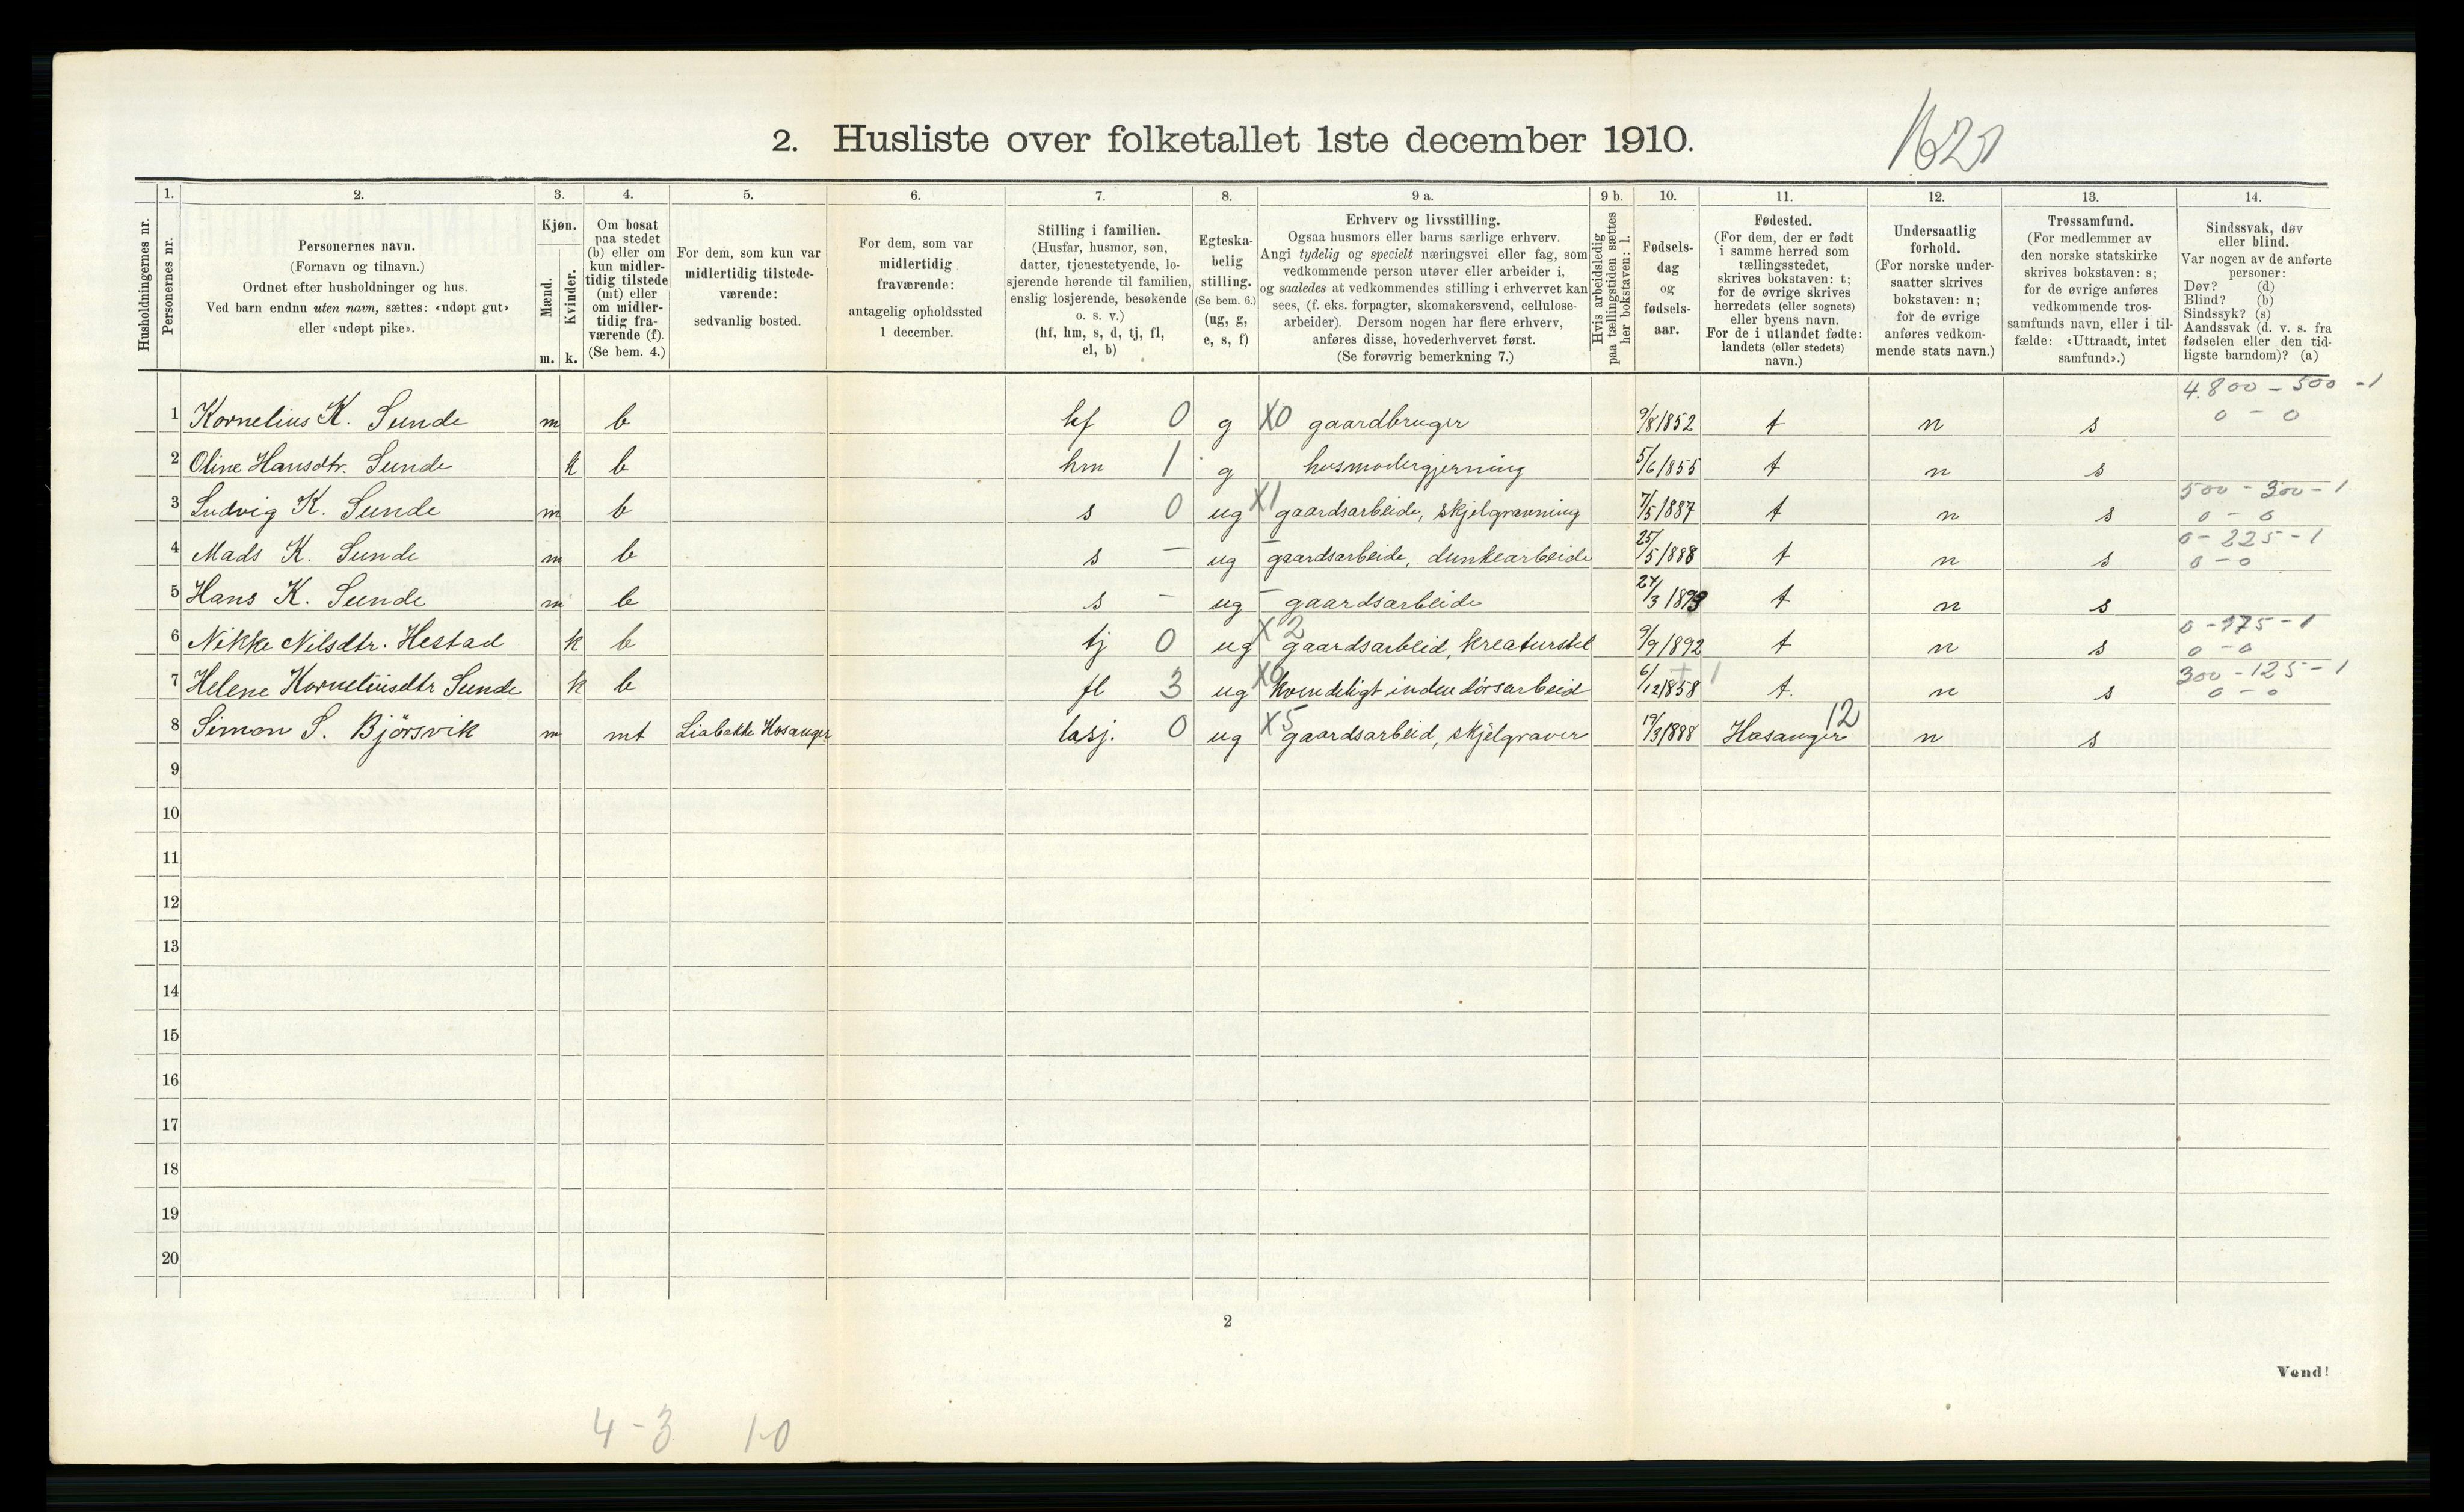 2. Husliste over folketallet 1ste december 1910.
1620
Husholdningernes nr.
1. Personernes nr.
2. Personernes navn. (Fornavn og tilnavn.) Ordnet efter husholdninger og hus. Ved barn endnu uten navn, sættes: «udøpt gut» eller «udøpt pike».
3. Kjøn. Mænd. m. Kvinder. k.
4. Om bosat paa stedet (b) eller om kun midler-tidig tilstede (mt) eller om midler-tidig fra-værende (f). (Se bem. 4.)
5. For dem, som kun var midlertidig tilstede-værende: sedvanlig bosted.
6. For dem, som var midlertidig fraværende: antagelig opholdssted 1 december.
7. Stilling i familien. (Husfar, husmor, søn, datter, tjenestetyende, lo-sjerende hørende til familien, enslig losjerende, besøkende o. s. v.) (hf, hm, s, d, tj, fl, el, b)
8. Egteska-belig stilling. (Se bem. 6.) (ug, g, e, s, f)
9 a. Erhverv og livsstilling. Ogsaa husmors eller barns særlige erhverv. Angi tydelig og specielt næringsvei eller fag, som vedkommende person utøver eller arbeider i, og saaledes at vedkommendes stilling i erhvervet kan sees, (f. eks. forpagter, skomakersvend, cellulose-arbeider). Dersom nogen har flere erhverv, anføres disse, hovederhvervet først. (Se forøvrig bemerkning 7.)
9 b. Hvis arbeidsledig paa tællingstiden sættes her bokstaven: l.
10. Fødsels-dag og fødsels-aar.
11. Fødested. (For dem, der er født i samme herred som tællingsstedet, skrives bokstaven: t; for de øvrige skrives herredets (eller sognets) eller byens navn. For de i utlandet fødte: landets (eller stedets) navn.)
12. Undersaatlig forhold. (For norske under-saatter skrives bokstaven: n; for de øvrige anføres vedkom-mende stats navn.)
13. Trossamfund. (For medlemmer av den norske statskirke skrives bokstaven: s; for de øvrige anføres vedkommende tros-samfunds navn, eller i til-fælde: «Uttraadt, intet samfund».)
14. Sindssvak, døv eller blind. Var nogen av de anførte personer: Døv? (d) Blind? (b) Sindssyk? (s) Aandssvak (d. v. s. fra fødselen eller den tid-ligste barndom)? (a)
1 Kornelius K. Sunde m b hf 0 g X0 gaardbruger 9/8 1852 t n s 4.800 - 500 - 1 0 - 0
2 Oline Hansdtr. Sunde k b hm 1 g husmodergjerning 5/6 1855 t n s
3 Ludvig K. Sunde m b s 0 ug X1 gaardsarbeide, skjelgravning 7/5 1887 t n s 500 - 300 - 1 0 - 0
4 Mads K. Sunde m b s - ug - gaardsarbeide, dunkearbeide 25/5 1888 t n s 0 - 225 - 1 0 - 0
5 Hans K. Sunde m b s - ug - gaardsarbeide 24/3 1893 t n s
6 Nikke Nilsdtr. Hestad k b tj 0 ug X2 gaardsarbeid, kreaturstel 9/9 1892 t n s 0 - 175 - 1 0 - 0
7 Helene Korneliusdtr Sunde k b fl 3 ug kvindeligt indendørsarbeid 6/12 1858 1 t. n s 300 - 125 - 1 0 - 0
8 Simon S. Björsvik m mt Liabakke Hosanger losj. 0 ug X5 gaardsarbeid, skjelgraver 19/3 1888 Hosanger 12 n s
9
10
11
12
13
14
15
16
17
18
19
20
2
Vend!
4 - 3 1-0